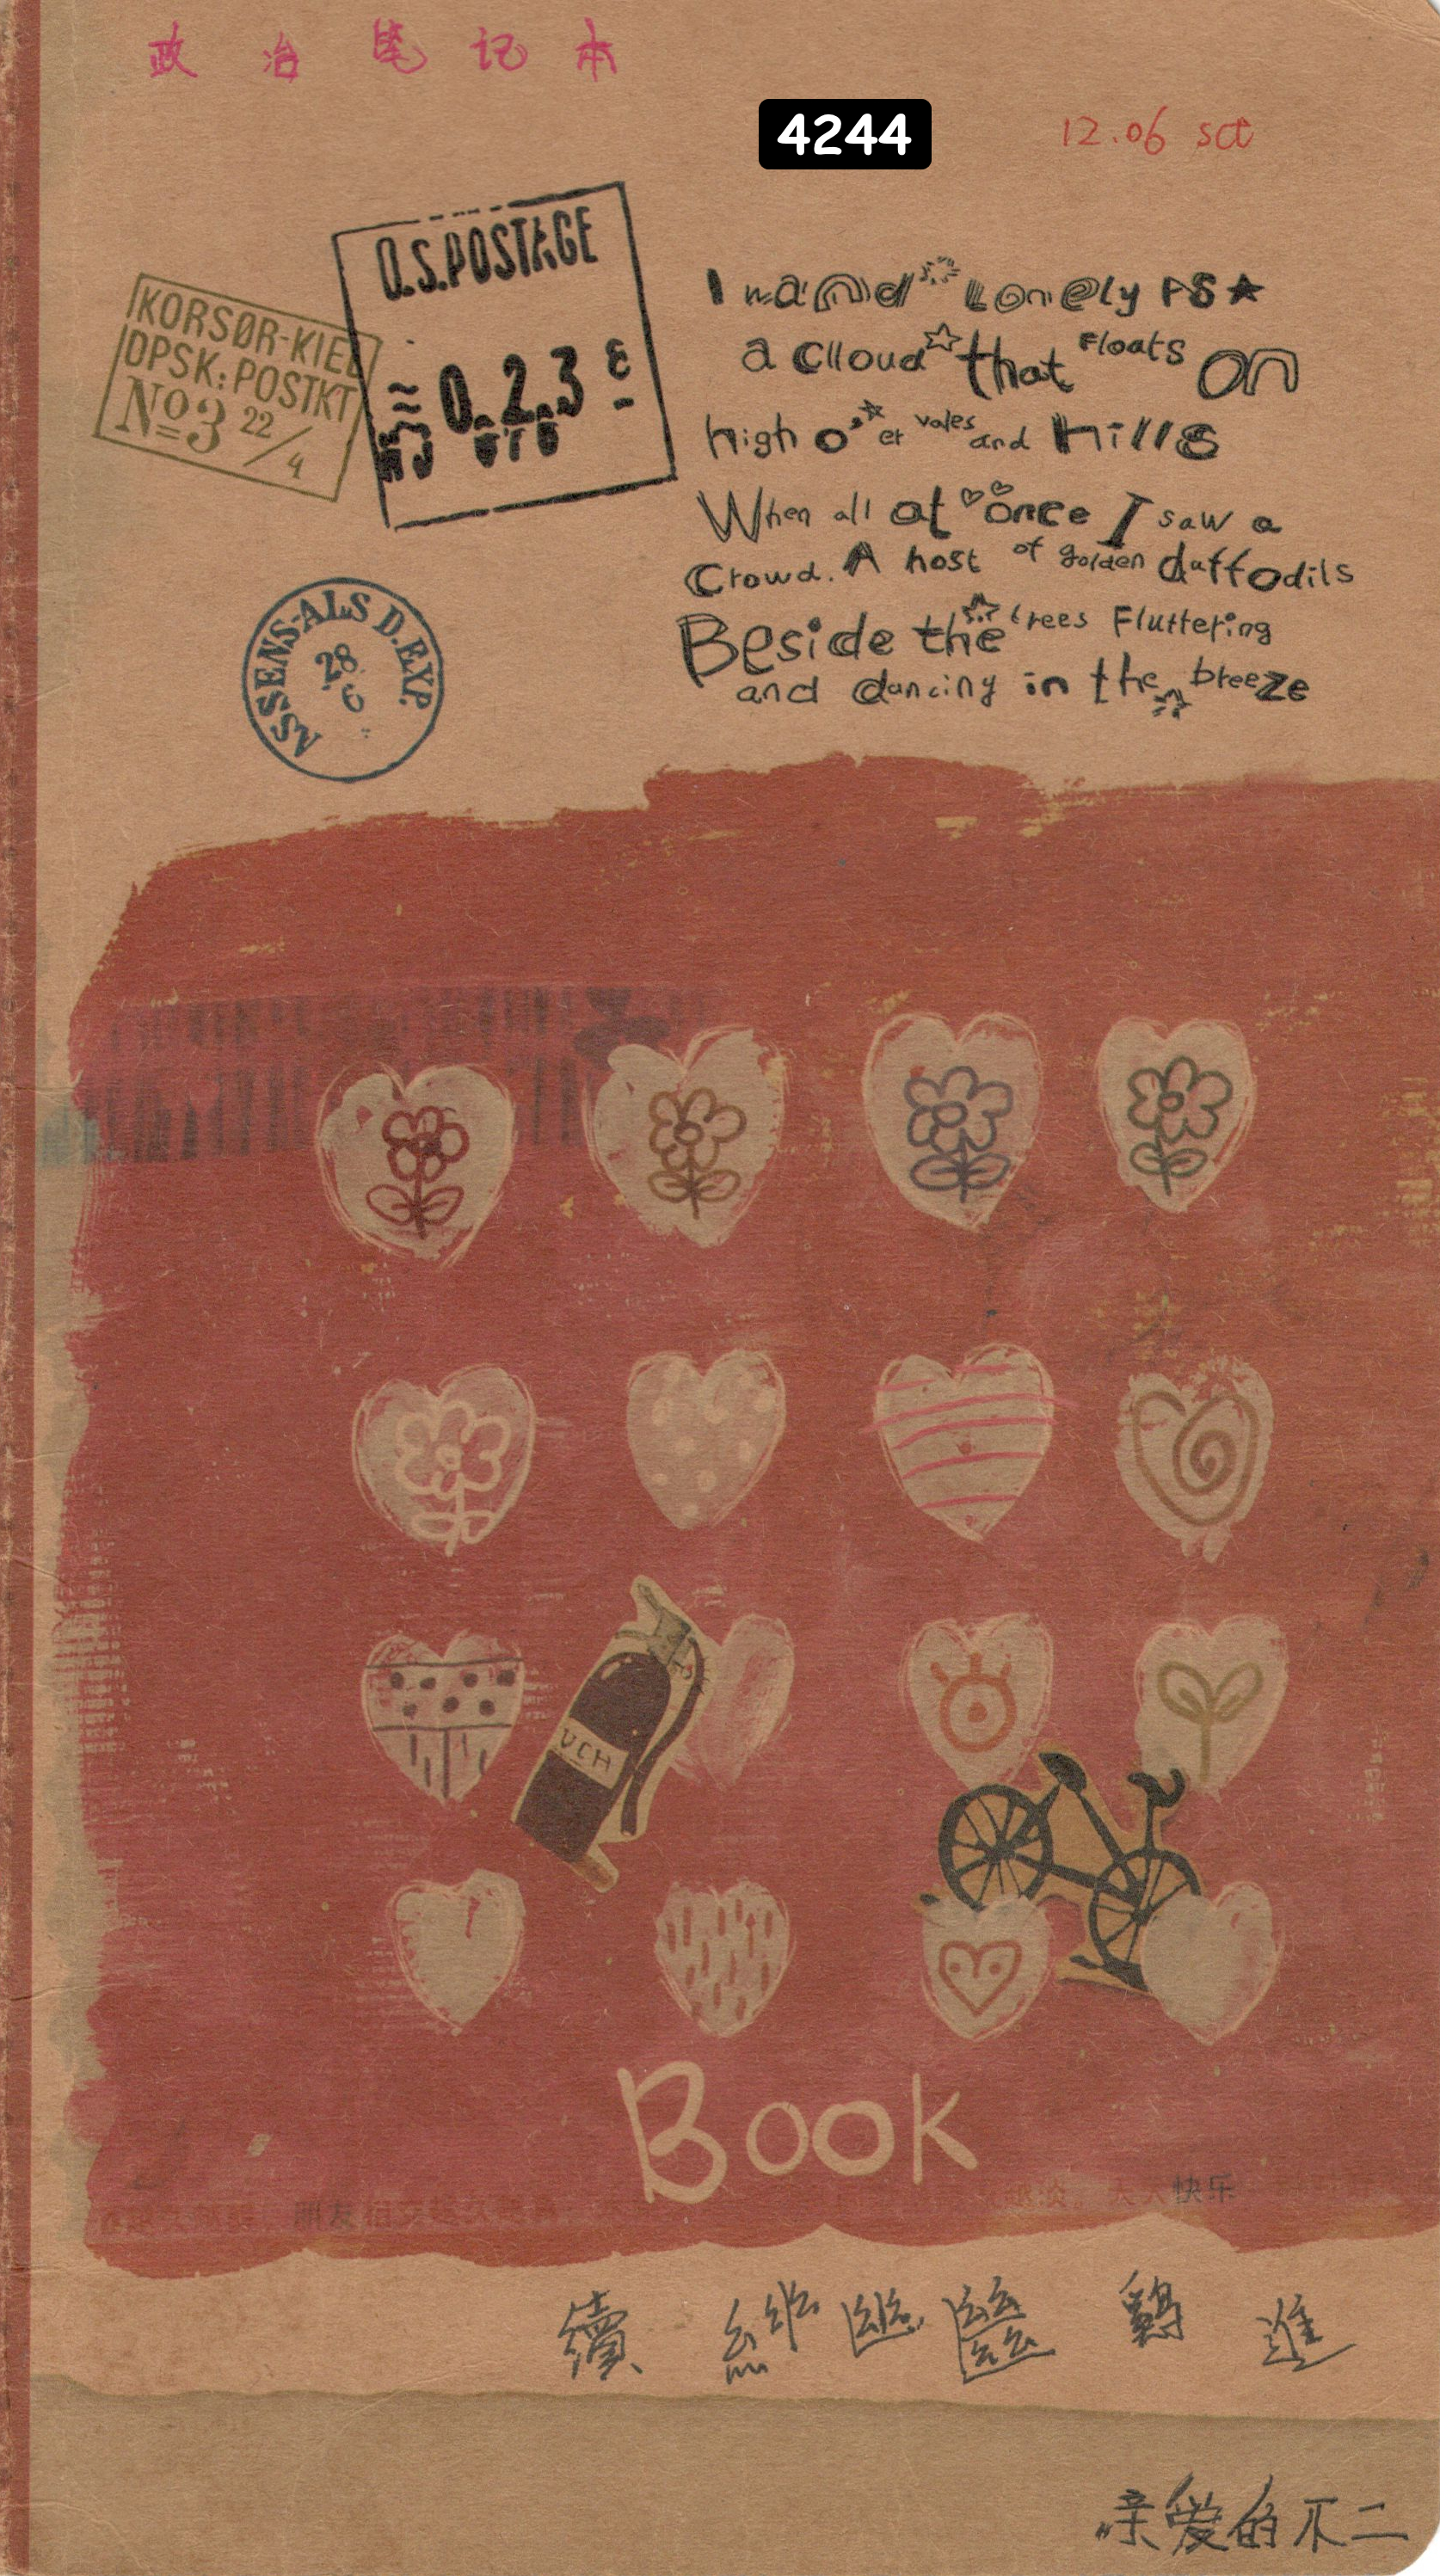 政治笔记本
4244
12.06 sat
O.S.POSTAGE
≈0.2.3 £
KORSØR-KIEL
DPSK: POSTKT
№3 22/4
I wand Lonely PS★
a Clloud☆that Floats on
high o'er vales and Hills
When all at once I saw a
Crowd. A host of golden daffodils
Beside the trees Fluttering
and dancing in the breeze
ASSENS-ALS D.EXP.
28.
6
VCH
Book
朋友
快乐
續
鷄 進
亲爱的不二